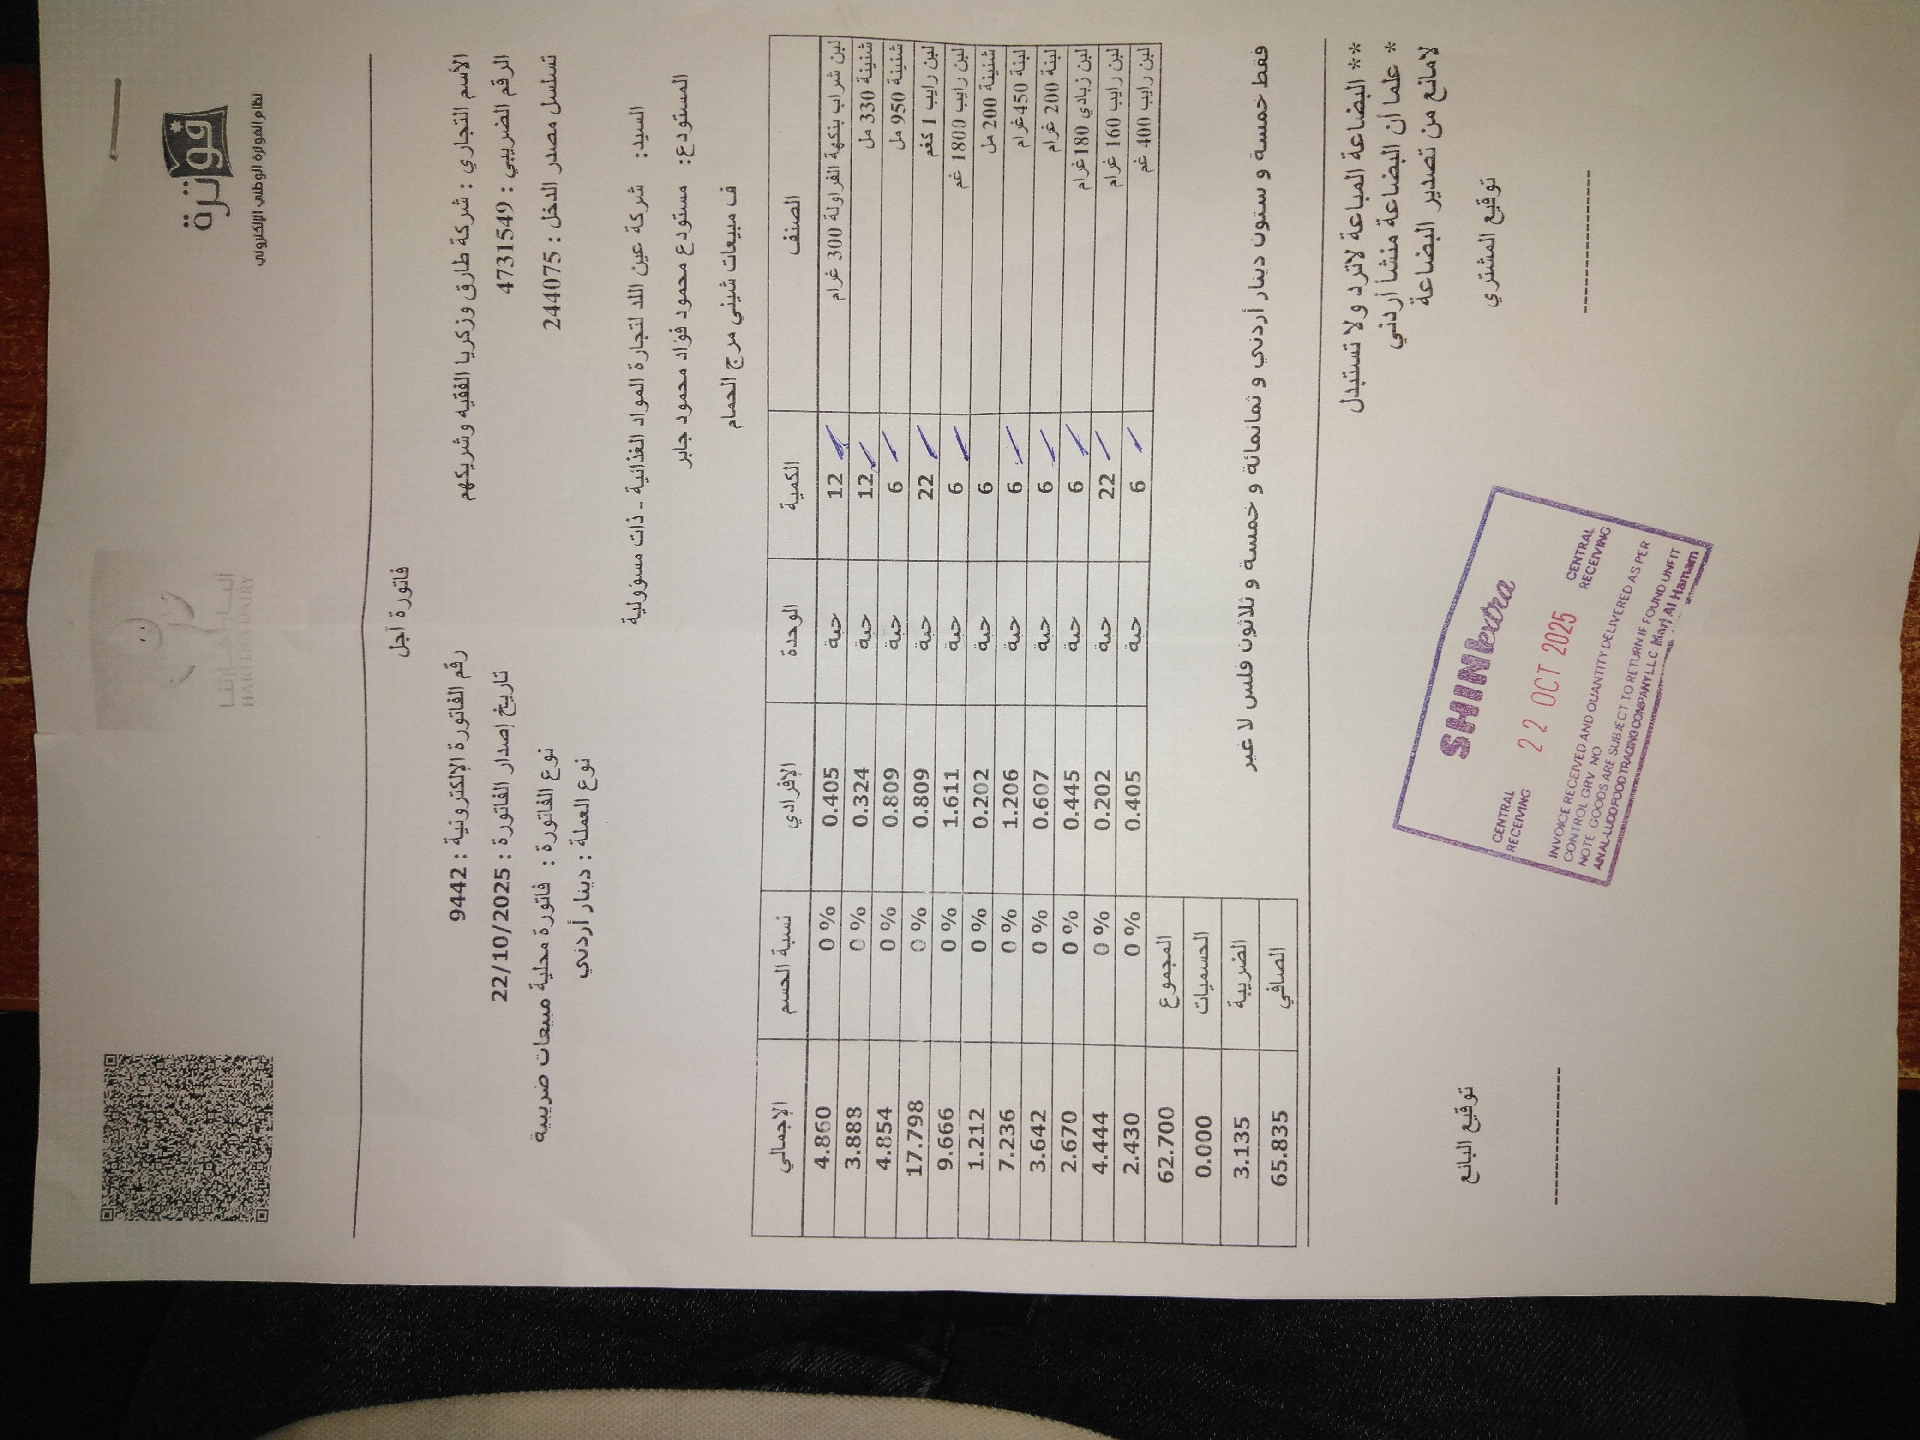 فوترة
نظام الفوترة الوطني الإلكتروني
ألبان حارتنا
HARITNA DAIRY
فاتورة آجل
الأسم التجاري : شركة طارق وزكريا الفقيه وشريكهم
رقم الفاتورة الإلكترونية : 9442
الرقم الضريبي : 4731549
تاريخ إصدار الفاتورة : 22/10/2025
تسلسل مصدر الدخل : 244075
نوع الفاتورة : فاتورة محلية مبيعات ضريبية
نوع العملة : دينار أردني
السيد: شركة عين اللد لتجارة المواد الغذائية - ذات مسؤولية
المستودع: مستودع محمود فؤاد محمود جابر
ف مبيعات شيني مرج الحمام
الصنف الكمية الوحدة الإفرادي نسبة الحسم الإجمالي
لبن شراب بنكهة الفراولة 300 غرام 12 حبة 0.405 0 % 4.860
شنينة 330 مل 12 حبة 0.324 0 % 3.888
شنينة 950 مل 6 حبة 0.809 0 % 4.854
لبن رايب 1 كغم 22 حبة 0.809 0 % 17.798
لبن رايب 1800 غم 6 حبة 1.611 0 % 9.666
شنينة 200 مل 6 حبة 0.202 0 % 1.212
لبنة 450 غرام 6 حبة 1.206 0 % 7.236
لبنة 200 غرام 6 حبة 0.607 0 % 3.642
لبن زبادي 180 غرام 6 حبة 0.445 0 % 2.670
لبن رايب 160 غرام 22 حبة 0.202 0 % 4.444
لبن رايب 400 غم 6 حبة 0.405 0 % 2.430
المجموع 62.700
الحسميات 0.000
الضريبة 3.135
الصافي 65.835
فقط خمسة و ستون دينار أردني و ثمانمائة و خمسة و ثلاثون فلس لا غير
** البضاعة المباعة لاترد ولا تستبدل
* علما أن البضاعة منشأ أردني
لامانع من تصدير البضاعة
توقيع المشتري
توقيع البائع
SHINIextra
CENTRAL RECEIVING
22 OCT 2025
CENTRAL RECEIVING
INVOICE RECEIVED AND QUANTITY DELIVERED AS PER
CONTROL GRV NO
NOTE GOODS ARE SUBJECT TO RETURN IF FOUND UNFIT
AIN AL-LUDD FOOD TRADING COMPANY LLC Marj Al Hamam